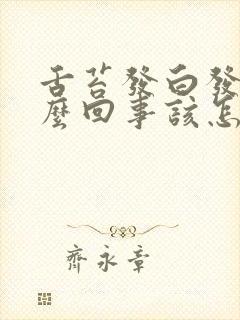 舌苔發白發
麼回事該怎
齊永章